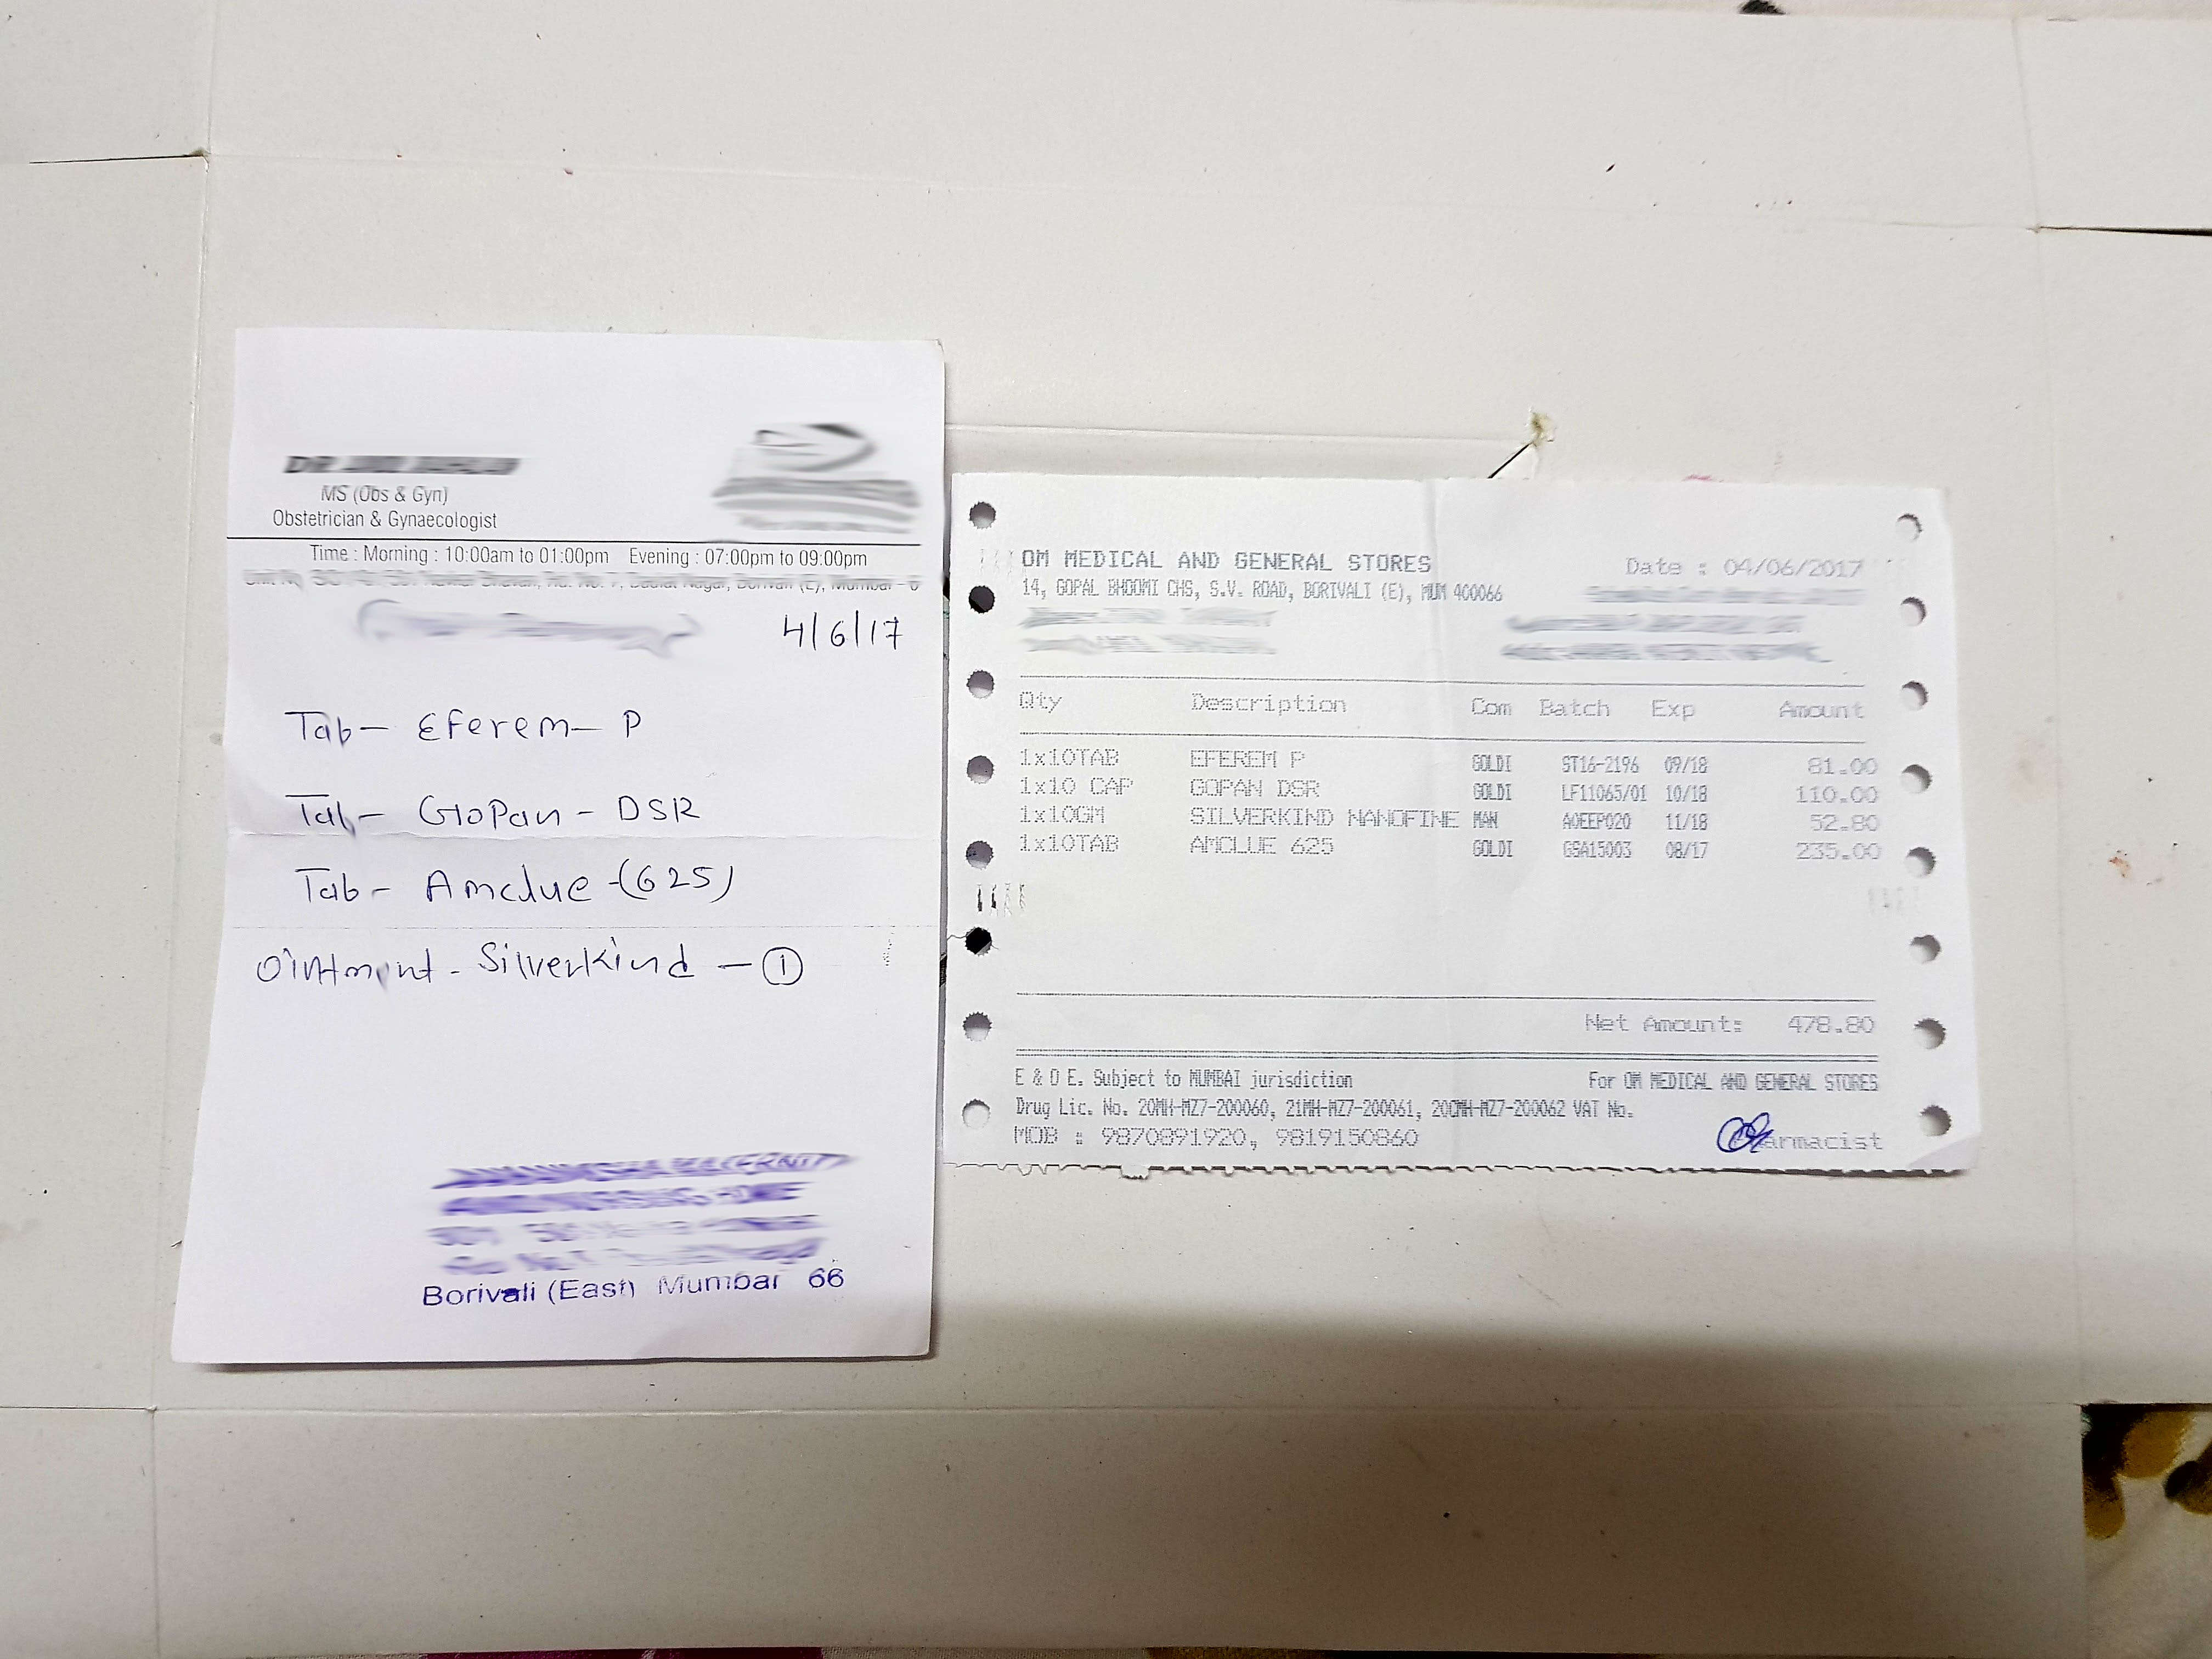 MS (Obs & Gyn)
Obstetrician & Gynaecologist
Time : Morning : 10:00am to 01:00pm Evening : 07:00pm to 09:00pm
4/6/17
Tab - Eferem - P
Tab - GoPan - DSR
Tab - Amclue - (625)
Ointment - Silverkind - 1
Borivali (East) Mumbai 66
OM MEDICAL AND GENERAL STORES Date : 04/06/2017
14, GOPAL BHOOMI CHS, S.V. ROAD, BORIVALI (E), MUM 400066
Qty Description Com Batch Exp Amount
1x10TAB EFEREM P GOLDI ST16-2196 09/18 81.00
1x10 CAP GOPAN DSR GOLDI LF11065/01 10/18 110.00
1x10GM SILVERKIND NANOFINE MAN AOEEP020 11/18 52.80
1x10TAB AMCLUE 625 GOLDI GSA15003 08/17 235.00
Net Amount: 478.80
E & O E. Subject to MUMBAI jurisdiction For OM MEDICAL AND GENERAL STORES
Drug Lic. No. 20MH-MZ7-200060, 21MH-MZ7-200061, 20CMH-MZ7-200062 VAT No.
MOB : 9870891920, 9819150860 Pharmacist